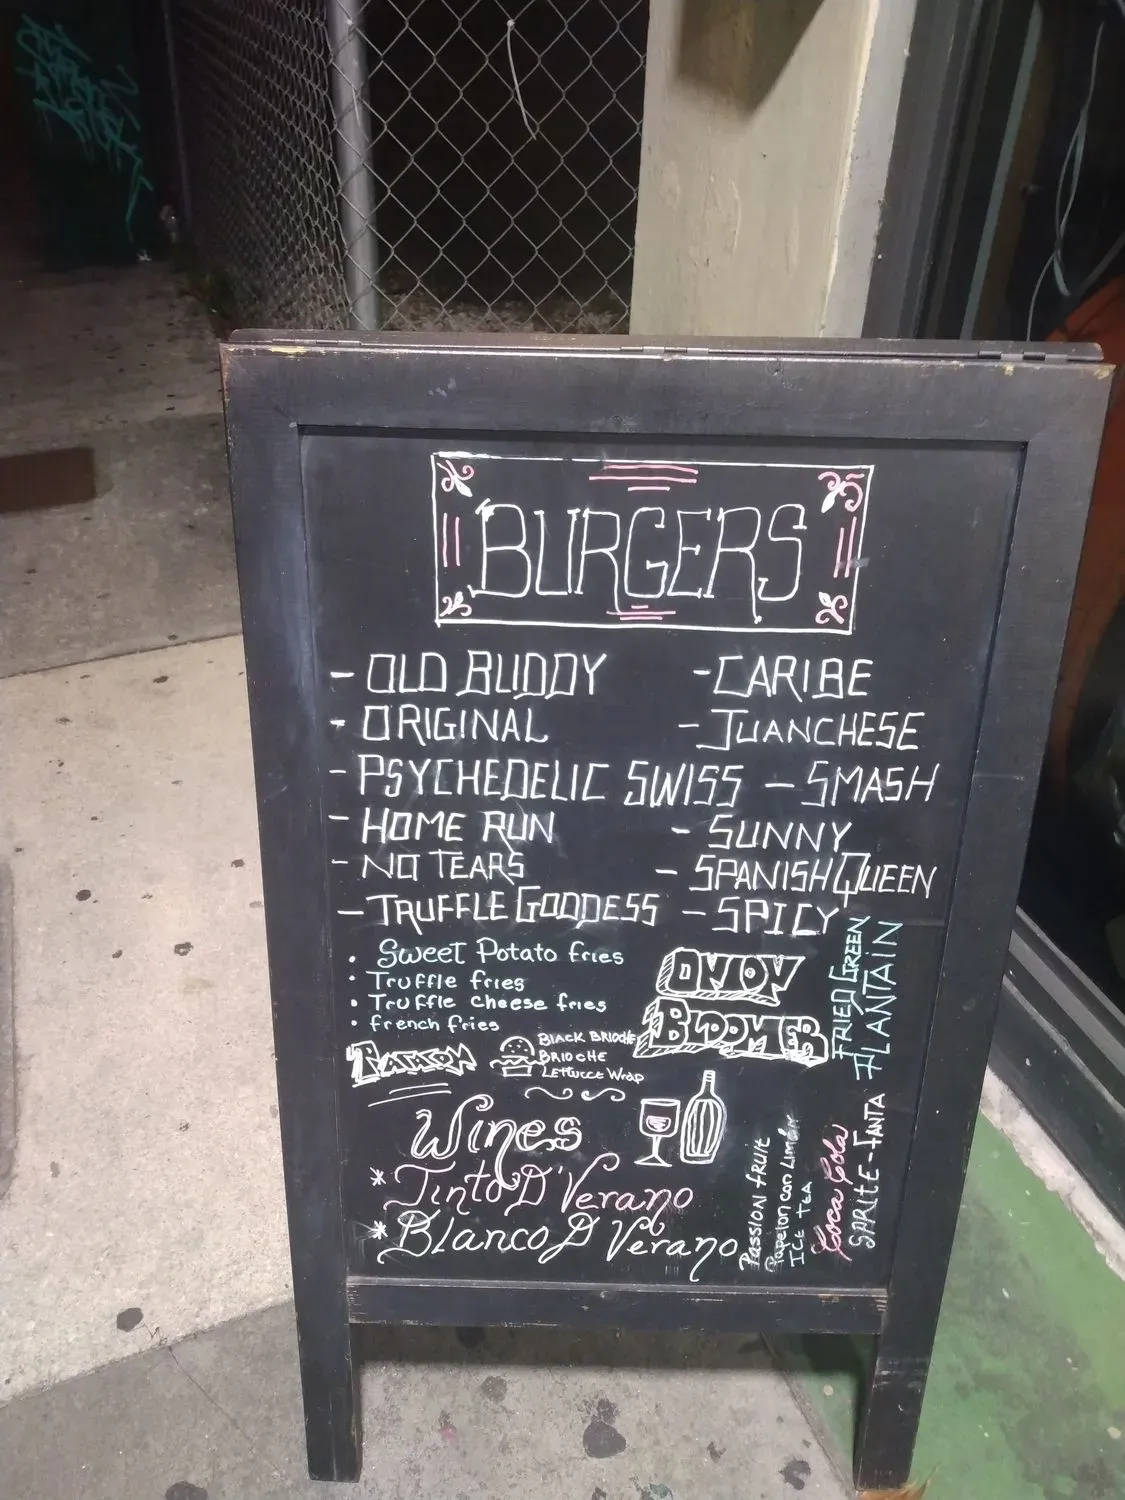 BURGERS
- OLD BUDDY
- ORIGINAL
- PSYCHEDELIC SWISS
- HOME RUN
- NO TEARS
- TRUFFLE GODDESS
- CARIBE
- JUANCHESE
- SMASH
- SUNNY
- SPANISH QUEEN
- SPICY
• Sweet Potato fries
• Truffle fries
• Truffle cheese fries
• french fries
ONION
BLOOMER
FRIED GREEN
PLANTAIN
BLACK BRIOCHE
BRIOCHE
Lettucce Wrap
Wines
* Tinto D'Verano
* Blanco D'Verano
Passion fruit
Papelon con Limón
ICE TEA
Coca Cola
SPRITE - FANTA